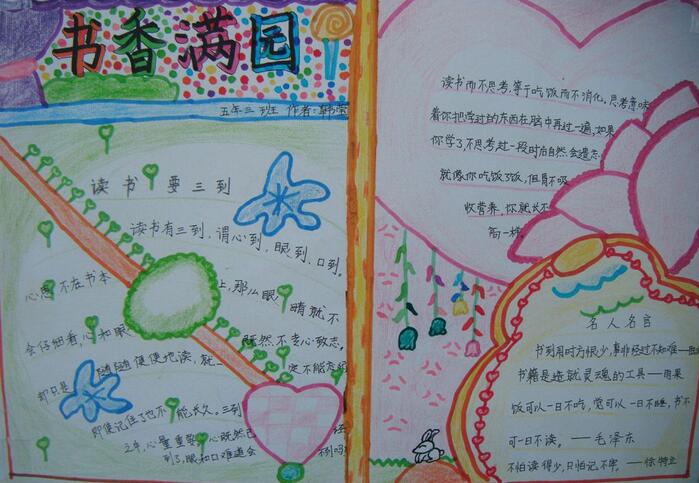 书香满园
五年三班 作者:韩雪
读书要三到
读书有三到,谓心到、眼到、口到。
心思不在书本上,那么眼睛就不
会仔细看,心和眼既然不专心致志,
却只是随随便便地读,就一定不能
即使记住了也不能长久。三到
之中,心最重要。心既然已
到了,眼和口难道会
读书而不思考,等于吃饭而不消化。思考意味
着你把学过的东西在脑中再过一遍,如果
你学了,不思考过一段时后自然会遗忘
就像你吃饭了饭,但胃不吸
收营养,你就长不
高一样。
名人名言
书到用时方恨少,事非经过不知难—
书籍是造就灵魂的工具—雨果
饭可以一日不吃,觉可以一日不睡,书不
可一日不读。——毛泽东
不怕读得少,只怕记不牢,——徐特立